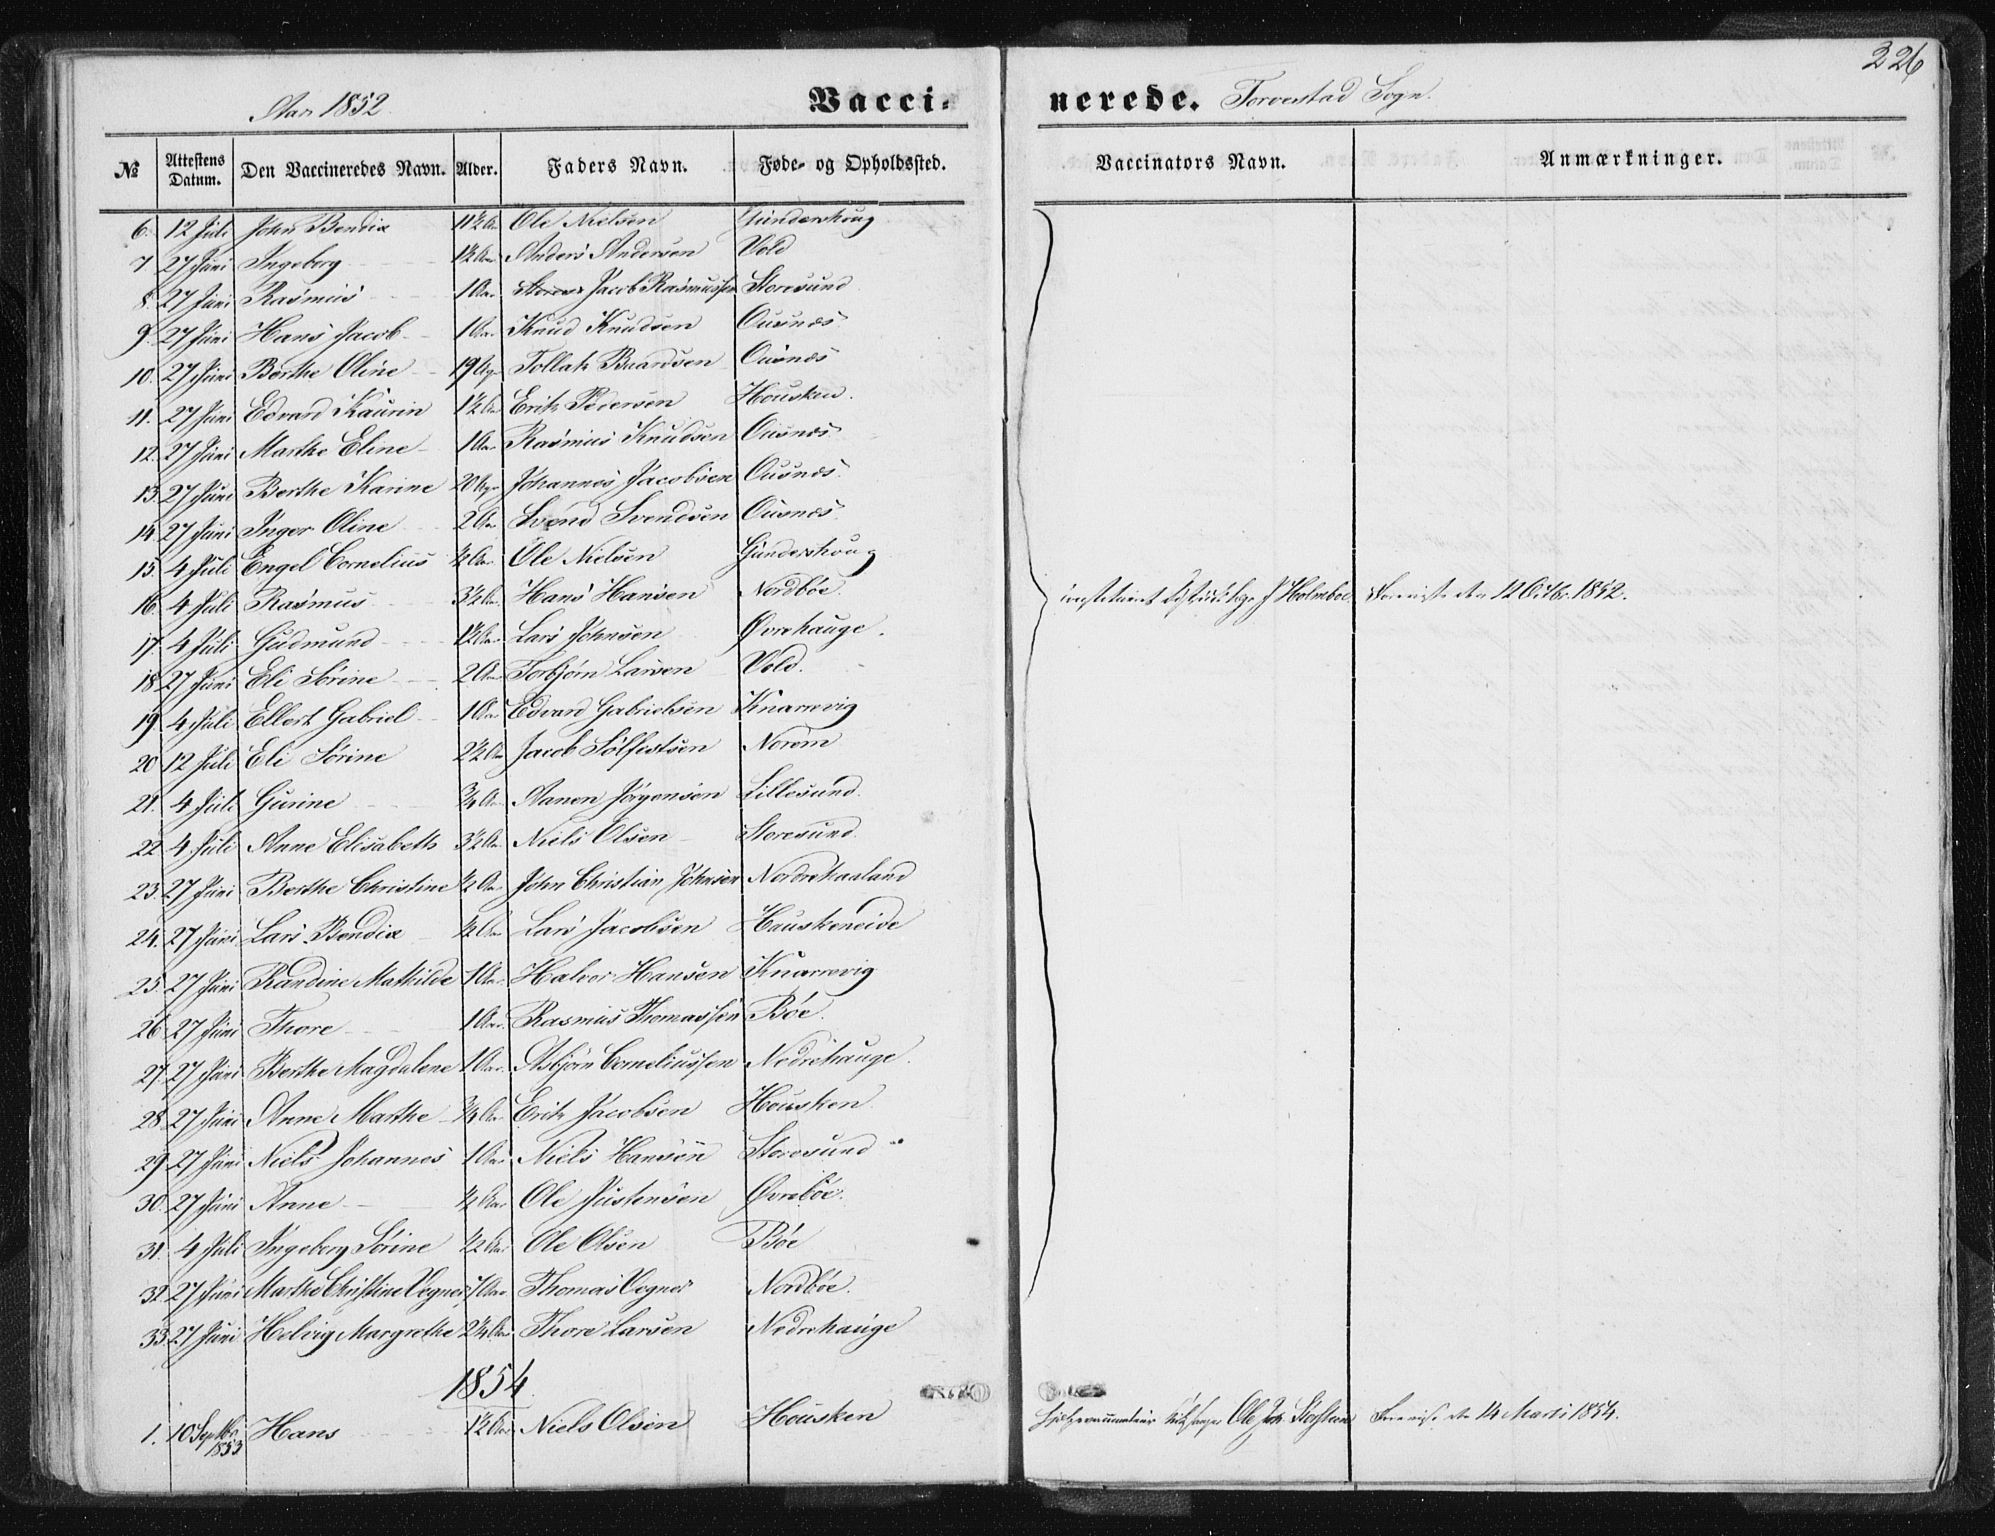 226
Aar 1852.
Vaccinerede. Torvestad Sogn.
№ Attestens Datum. Den Vaccineredes Navn. Alder. Faders Navn. Føde- og Opholdssted. Vaccinators Navn. Anmærkninger.
6. 12 Juli John Bendix 1 1/2 Aar Ole Nielsen Gundershoug
7 27 Juni Ingeborg 1 1/2 Aar Anders Andersen Vold
8. 27 Juni Rasmus 1 Aar Jacob Rasmussen Storesund
9. 27 Juni Hans Jacob 1 Aar Knud Knudsen Ousnæs
10. 27 Juni Berthe Oline 19 Uger Tollak Baardsen Ousnæs
11. 27 Juni Edvard Kaurin 1 1/2 Aar Erik Pedersen Housken.
12. 27 Juni Marthe Eline 1 Aar Rasmus Knudsen Ousnæs
13. 27 Juni Berthe Karine 20 Uger Johannes Jacobsen Ousnæs.
14. 27 Juni Inger Oline 2 Aar Svend Svendsen Ousnæs.
15. 4 Juli Engel Cornelius 1/2 Aar Ole Nielsen Gundershoug
16 4 Juli Rasmus 3 1/2 Aar Hans Hansen Nordbøe. J Holmboe den 12 Octbr. 1852.
17. 4 Juli Gudmund 1 1/2 Aar Lars Johnsen Øvrehauge.
18 27 Juni Eli Sørine 2 Aar Torbjørn Larsen Vold.
19. 4 Juli Ellert Gabriel 1 Aar Edvard Gabrielsen Knarrevig
20 12 Juli Eli Sørine 2 1/2 Aar Jacob Sølfestsen Norem
21. 4 Juli Gurine 3/4 Aar Aanen Jørgensen Lillesund.
22 4 Juli Anne Elisabeth 3 1/2 Aar Niels Olsen Storesund.
23. 27 Juni Berthe Christine 1/2 Aar John Christian Johnsen Nordrehaaland
24. 27 Juni Lars Bendix 1/2 Aar Lars Jacobsen Houskeneide
25. 27 Juni Randine Mathilde 1 Aar Halvor Hansen Knarrevig
26 27 Juni Thore 1 Aar Rasmus Thomassen Bøe.
27. 27 Juni Berthe Magdalene 1 Aar Asbjørn Corneliussen Nedrehauge.
28. 27 Juni Anne Marthe 3/4 Aar Erik Jacobsen Housken.
29. 27 Juni Niels Johannes 1 Aar Niels Hansen Storesund
30. 27 Juni Anne 1/2 Aar Ole Justensen Øvrebøe.
31. 4 Juli Ingeborg Sørine 1/2 Aar Ole Olsen Bøe
32. 27 Juni Marthe Christine Vogner 7 Aar Thomas Vogner Nordbøe.
33. 27 Juni Helvig Margrethe 2 1/4 Aar Thore Larsen Nedrehauge
1854.
1. 10 Septbr 1853 Hans 1 1/2 Aar Niels Olsen Housken Ole Joh. den 14 Marts 1854.